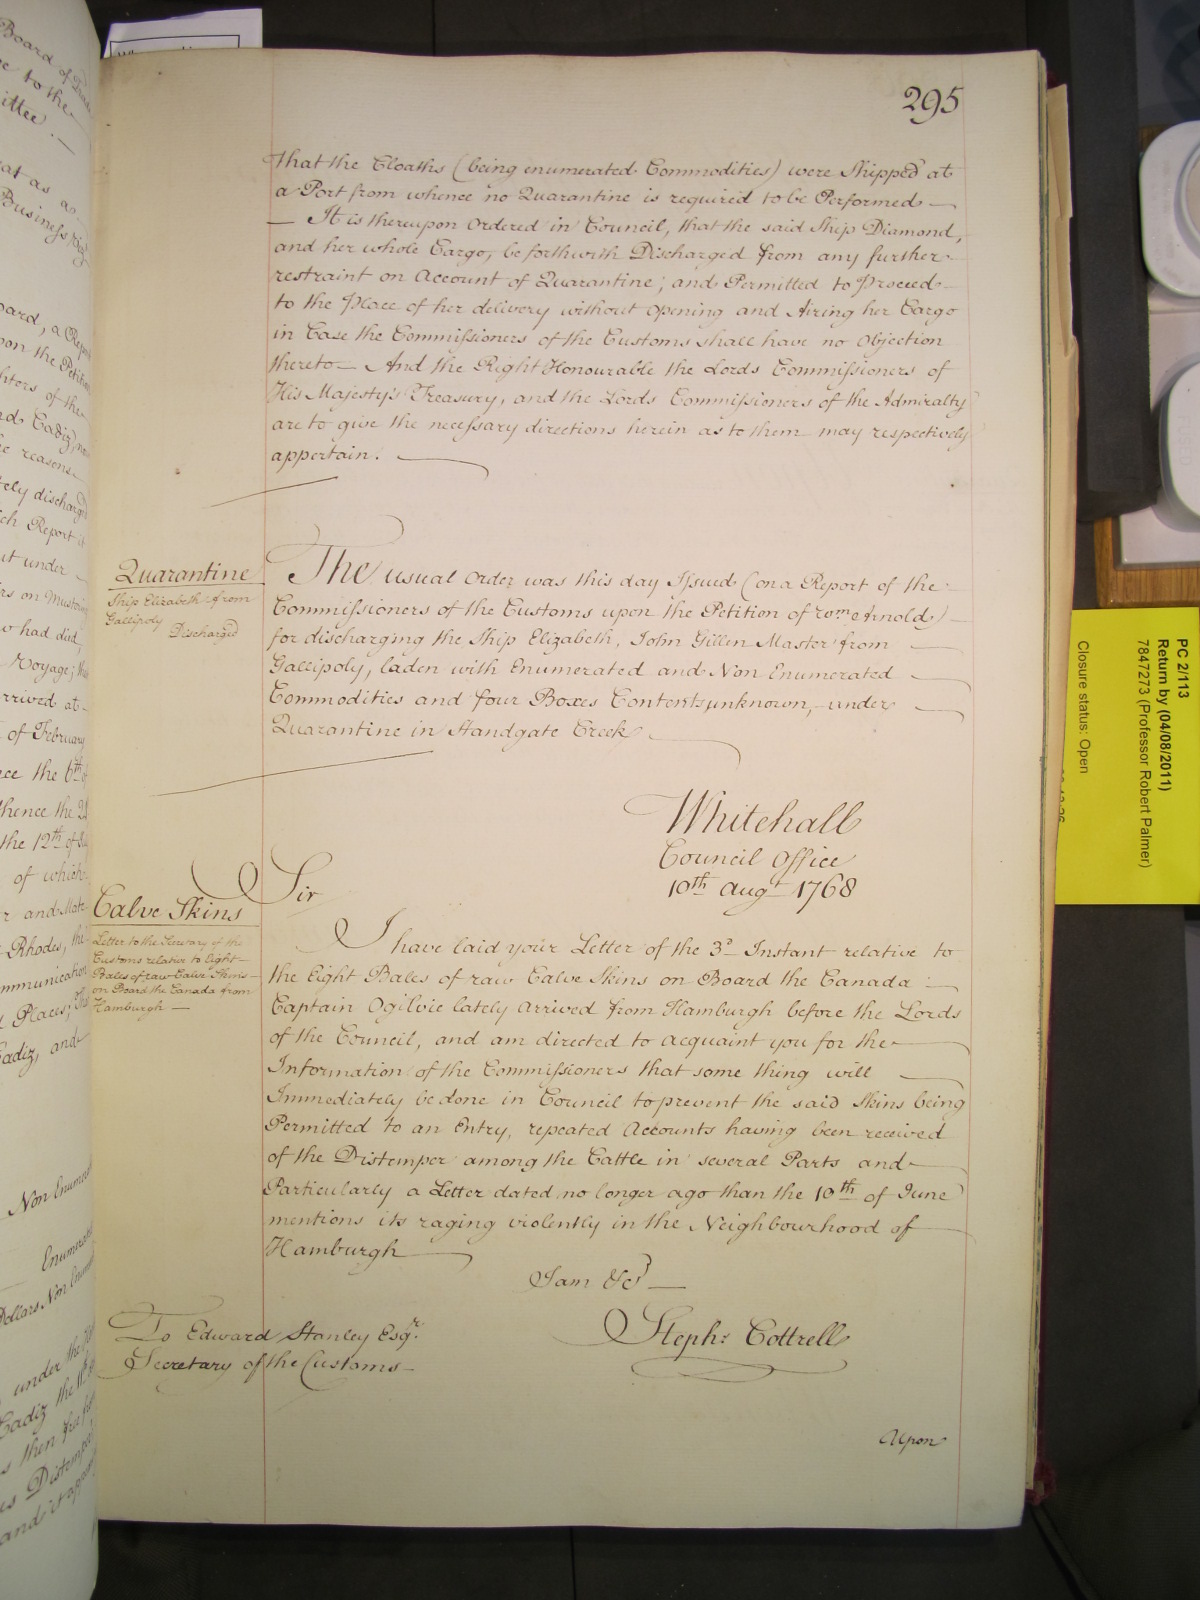 295
that the Cloaths (being enumerated Commodities) were Shipped at
a Port from whence no Quarantine is required to be Performed —
— It is thereupon Ordered in Council, that the said Ship Diamond,
and her whole Cargo, be forthwith Discharged from any further
restraint on Account of Quarantine; and Permitted to Proceed
to the Place of her delivery without opening and Airing her Cargo
in Case the Commissioners of the Customs shall have no Objection
thereto — And the Right Honourable the Lords Commissioners of
His Majesty's Treasury, and the Lords Commissioners of the Admiralty
are to give the necessary directions herein as to them may respectively
appertain.
Quarantine
Ship Elizabeth from
Gallipoly Discharged
The usual Order was this day Issued (on a Report of the
Commissioners of the Customs upon the Petition of Wm. Arnold)
for discharging the Ship Elizabeth, John Gillen Master from
Gallipoly, laden with Enumerated and Non Enumerated
Commodities and four Boxes Contents unknown, under
Quarantine in Standgate Creek
Whitehall
Council Office
10th Augt 1768
Calve Skins
Letter to the Secretary of the
Customs relative to Eight
Bales of raw Calve Skins
on Board the Canada from
Hamburgh —
Sir
I have laid your Letter of the 3d Instant relative to
the Eight Bales of raw Calve Skins on Board the Canada
Captain Ogilvie lately arrived from Hamburgh before the Lords
of the Council, and am directed to acquaint you for the
Information of the Commissioners that some thing will
Immediately be done in Council to prevent the said Skins being
Permitted to an Entry, repeated Accounts having been received
of the Distemper among the Cattle in several Parts and
Particularly a Letter dated no longer ago than the 10th of June
mentions its raging violently in the Neighbourhood of
Hamburgh
I am &c.
Steph: Cottrell
To Edward Stanley Esqr.
Secretary of the Customs
Upon
PC 2/113
Return by (04/08/2011)
7847273 (Professor Robert Palmer)
Closure status: Open